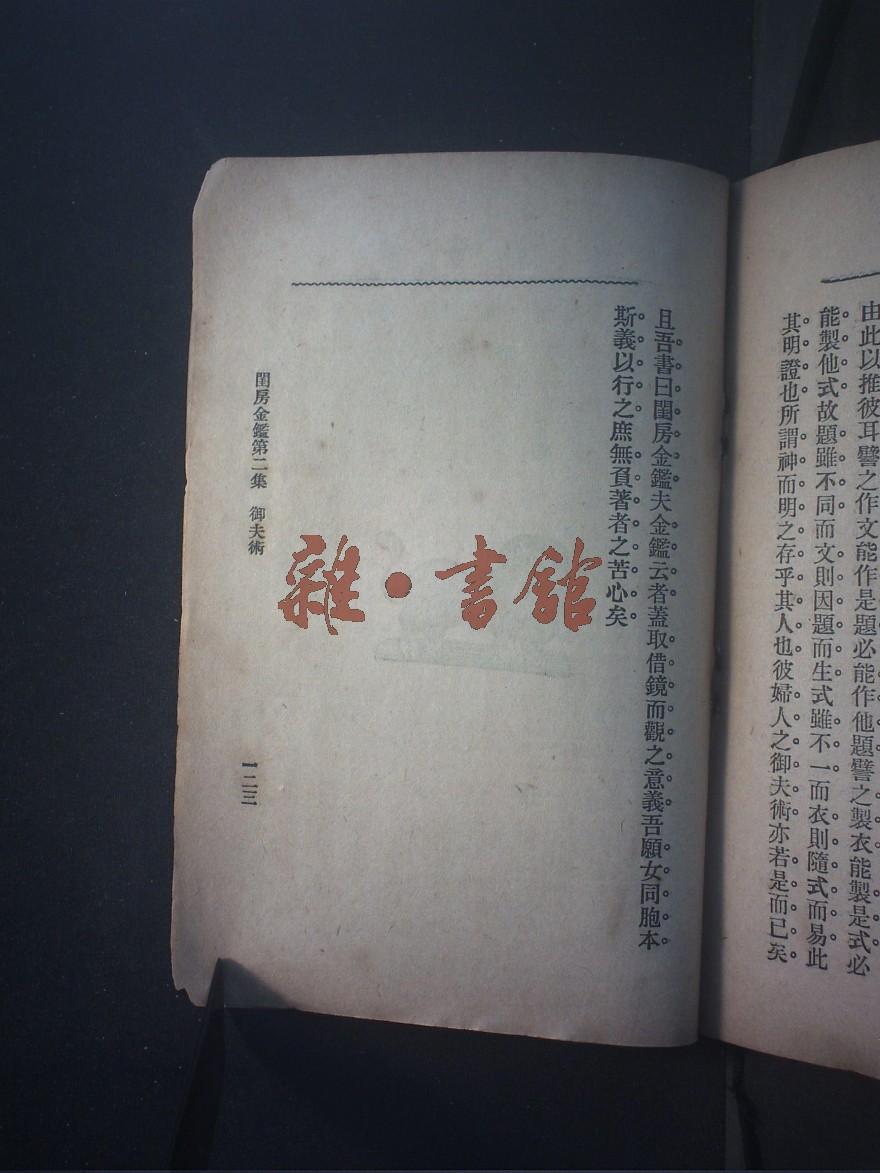 由此以推彼耳譬之作文能作是題必能作他題譬之製衣能製是式必
能製他式故題雖不同而文則因題而生式雖不一而衣則隨式而易此
其明證也所謂神而明之存乎其人也彼婦人之御夫術亦若是而已矣
且吾書曰閨房金鑑夫金鑑云者蓋取借鏡而觀之意義吾願女同胞本
斯義以行之庶無負著者之苦心矣
閨房金鑑第二集　御夫術
一二三
雜•書館